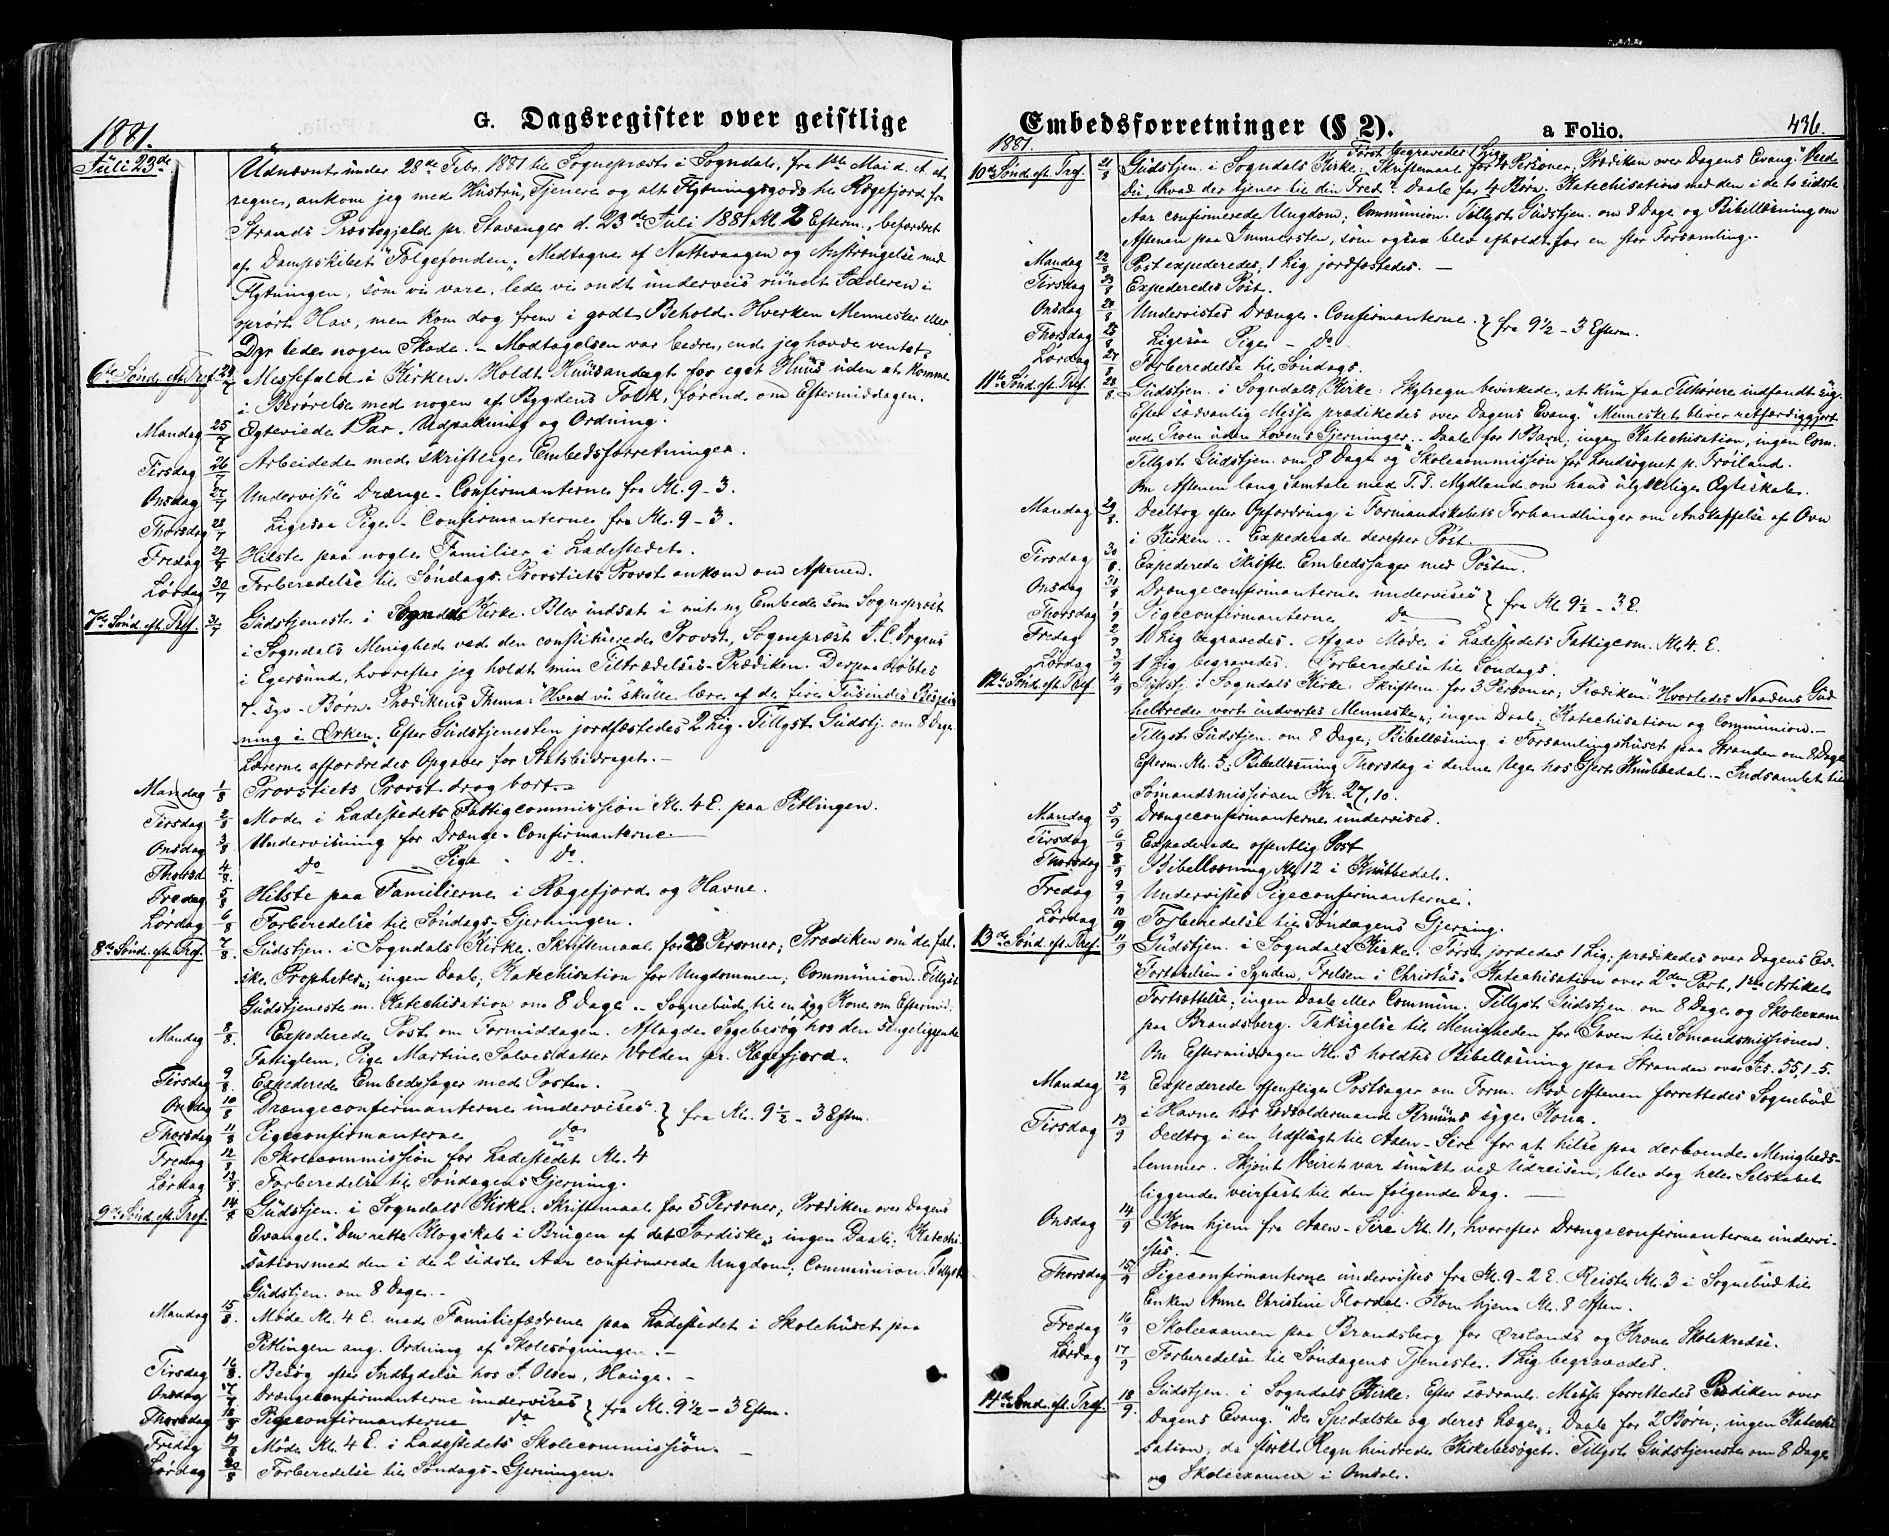 G. Dagsregister over geistlige
1881.
Juli 23de Udnævnt under 28de Febr. 1881 til Sognepræst i Sogndal, fra 1ste Mai d. A. at
regne, ankom jeg med Hustru, Tjenere og alt Flytningsgods til Rægefjord, fra
Strands Præstegjeld pr. Stavanger d. 23de Juli 1881 Kl. 2 Efterm., befordret
af Dampskibet "Folgefonden". Medtagne af Nattevaagen og Anstrængelse med
Flytningen, som vi vare, lede vi ondt underveis rundt Jæderen i
oprørt Hav, men kom dog frem i godt Behold. Hverken Mennesker eller
Dyr lede nogen Skade. – Modtagelsen var bedre, end jeg havde ventet.
6te Sønd. eft. Tref. 24/7 Messefald i Kirken. Holdt Huusandagt for eget Huus uden at komme
i Berørelse med nogen af Bygdens Folk, førend om Eftermiddagen.
Mandag 25/7 Egteviede 1 Par. Udpakning og Ordning.
Tirsdag 26/7 Arbeidede med skriftlige Embedsforretninger.
Onsdag 27/7 Undervistes Drænge-Confirmanterne fra Kl. 9-3.
Thorsdag 28/7 Ligesaa Pige-Confirmanterne fra Kl. 9-3.
Fredag 29/7 Hilste paa nogle Familier i Ladestedet.
Lørdag 30/7 Forberedelse til Søndags. Provstiets Provst ankom om Aftenen.
7de Sønd. eft. Tref. 31/7 Gudstjeneste i Sogndals Kirke. Blev indsat i mit ny Embede som Sognepræst
i Sogndals Menighed ved den constituerede Provst, Sognepræst
i Egersund, hvorefter jeg holdt min Tiltrædelses-Prædiken. Derpaa døbtes
7 – syv – Børn. Prædikens Thema: "Hvad vi skulle lære af de fire Tusindes Bespis-
ning i Ørken". Efter Gudstjenesten jordfæstedes 2 Lig. Tillyst Gudstj. om 8 Dage.
Lærerne affordredes Opgaver for Statsbidraget. –
Mandag 1/8 Provstiets Provst drog bort. –
Tirsdag 2/8 Møde i Ladestedets Fattigcommission Kl. 4 E. paa Pitlingen.
Onsdag 3/8 Undervisning for Drænge-Confirmanterne.
Thorsd 4/8. Do Pige - Do
Fredag 5/8 Hilste paa Familierne i Rægefjord og Havne.
Lørdag 6/8 Forberedelse til Søndags-Gjerningen.
8de Sønd. eft. Tref. 7/8. Gudstjen. i Sogndals Kirke. Skriftemaal for 28 Personer; Prædiken om "de fal-
ske Propheter"; ingen Daab; Katechisation for Ungdommen; Communion. Tillyst
Gudstjeneste m. Katechisation om 8 Dage. – Sognebud til en syg Kone om Eftermid.
Mandag 8/8. Expederede Post om Formiddagen. Aflagde Sygebesøg hos den sengeliggende
Fattiglem, Pige Martine Salvesdatter Volden pr. Rægefjord.
Tirsdag 9/8. Expederede Embedssager med Posten.
Onsdag 10/8 Drængeconfirmanterne undervises } fra Kl. 9½ – 3 Eftm.
Thorsdag 11/8 Pigeconfirmanterne do
Fredag 12/8 Skolecommission for Ladestedet Kl. 4
Lørdag 13/8. Forberedelse til Søndagens Gjerning.
9de Sønd. eft. Tref. 14/8 Gudstjen. i Sogndals Kirke. Skriftemaal for 5 Personer; Prædiken over Dagens
Evangel. "Den rette Klogskab i Brugen af det Jordiske"; ingen Daab; Katechi-
sation med den i de 2 sidste Aar confirmerede Ungdom; Communion. Tillyst
Gudstjen. om 8 Dage. –
Mandag 15/8. Møde Kl. 4 E. med Familiefædrene paa Ladestedet i Skolehuset paa
Pitlingen ang. Ordning af Skolesøgningen. –
Tirsdag 16/8. Besøg efter Indbydelse hos J. Olsen, Hauge. –
Onsdag 17/8 Drængeconfirmanterne undervises } fra Kl. 9½ – 3 Eftm.
Thorsdag 18/8 Pigeconfirmanterne do
Fredag 19/8 Møde Kl. 4 E. i Ladestedets Skolecommission.
Lørdag 20/8 Forberedelse til Søndags-Gjerningen.
Embedsforretninger (§ 2). a Folio. 436.
1881.
Først begravedes 1 Lig
10de Sønd. eft. Tref. 21/8 Gudstjen. i Sogndals Kirke: Skriftemaal for 4 Personer; Prædiken over Dagens Evang. "Vend
Dei, hvad der tjener til din Fred". Daab for 4 Børn. Katechisation med den i de to sidste
Aar confirmerede Ungdom; Communion. Tillyst Gudstjen. om 8 Dage og Bibellæsning om
Aftenen paa Immersten, som ogsaa blev afholdt for en stor Forsamling. –
Mandag 22/8 Post expederedes; 1 Lig jordfæstedes. –
Tirsdag 23/8 Expederedes Post.
Onsdag 24/8 Undervistes Drænge-Confirmanterne } fra 9½ – 3 Efterm.
Thorsdag 25/8 Ligesaa Pige – Do
Lørdag 27/8 Forberedelse til Søndags.
11te Sønd. eft. Tref. 28/8. Gudstjen. i Sogndals Kirke: Skylregn bevirkede, at kun faa Tilhørere indfandt sig.
Efter sædvanlig Messe prædikedes over Dagens Evang. "Mennesket bliver retfærdiggjort
ved Troen uden Lovens Gjerninger". Daab for 1 Barn; ingen Katechisation, ingen Com.
Tillyst Gudstjen. om 8 Dage og Skolecommission for Landsognet p. Trøiland.
Om Aftenen lang Samtale med T. T. Mydland om hans ulykkelige Ægteskab.
Mandag 29/8. Deeltog efter Opfordring i Formandskabets Forhandlinger om Anskaffelse af Ovn
i Kirken. Expederede derefter Post.
Tirsdag 30/8 Expederede skriftl. Embedssager med Posten.
Onsdag 31/8 Drængeconfirmanterne undervises } fra Kl. 9½ – 3 E.
Thorsdag 1/9 Pigeconfirmanterne Do
Fredag 2/9 1 Lig begravedes. Afgav Møde i Ladestedets Fattigcom. Kl. 4 E.
Lørdag 3/9 1 Lig begravedes. Forberedelse til Søndags.
12te Sønd. eft. Tref. 4/9 Gudstj. i Sogndals Kirke. Skriftem. for 3 Personer; Prædiken "Hvorledes Naadens Gud
helbreder vort indvortes Menneske"; ingen Daab; Katechisation og Communion. –
Tillyst Gudstjen. om 8 Dage; Bibellæsning i Forsamlingshuset paa Stranden om 8 Dage
Efterm. Kl. 5; Bibellæsning Thorsdag i denne Uge hos Gjert Knubbedal. – Indsamlet til
Sømandsmissionen Kr. 27,10.
Mandag 5/9 Drængeconfirmanterne undervises.
Tirsdag 6/9 Expederedes offentlig Post
Thorsdag 8/9 Bibellæsning Kl. 12 i Knubbedal.
Fredag 9/9 Undervistes Pigeconfirmanterne.
Lørdag 10/9 Forberedelse til Søndagens Gjerning.
13de Sønd. eft. Tref. 11/9 Gudstjen. i Sogndals Kirke. Først jordedes 1 Lig; prædikedes over Dagens Ev.
"Fortabelsen i Synden, Frelsen i Christus". Katechisation over 2den Part, 1ste Artikels
Fortsættelse; ingen Daab eller Commun. Tillyst Gudstjen. om 8 Dage og Skoleexam
paa Brandsberg. Taksigelse til Menigheden for Gaven til Sømandsmissionen.
Om Eftermiddagen Kl. 5 holdtes Bibellæsning paa Stranden over Jes. 55, 1-5.
Mandag 12/9 Expederede offentlige Postsager om Form. Mod Aftenen forrettedes Sognebud
i Havne hos syge Kone.
Tirsdag 13/9 Deeltog i en Udflugt til Aaen-Sire for at hilse paa derboende Menigheds-
lemmer. Skjønt Veiret var smukt ved Udreisen, blev dog hele Selskabet
liggende veirfast til den følgende Dag. –
Onsdag 14/9 Kom hjem fra Aaen-Sire Kl. 11, hvorefter Drængeconfirmanterne undervi-
stes. –
Thorsdag 15/9 Pigeconfirmanterne undervistes fra Kl. 9-2 E. Reiste Kl. 3 i Sognebud til
Enken Anne Christine Flordal. Kom hjem Kl. 8 Aften.
Fredag 16/9 Skoleexamen paa Brandsberg for Ørslands og Krone Skolekredse.
Lørdag 17/9 Forberedelse til Søndagens Tjeneste. 1 Lig begravedes.
14de Sønd. eft. Tref. 18/9. Gudstjen. i Sogndals Kirke. Efter sædvanl. Messe forrettedes Prædiken over
Dagens Evang. "De Spedalske og deres Læge"; Daab for 2 Børn; ingen Katechi-
sation, da stærkt Regn hindrede Kirkebesøget. Tillyst Gudstjeneste om 8 Dage
og Skoleexamen i Omdal.